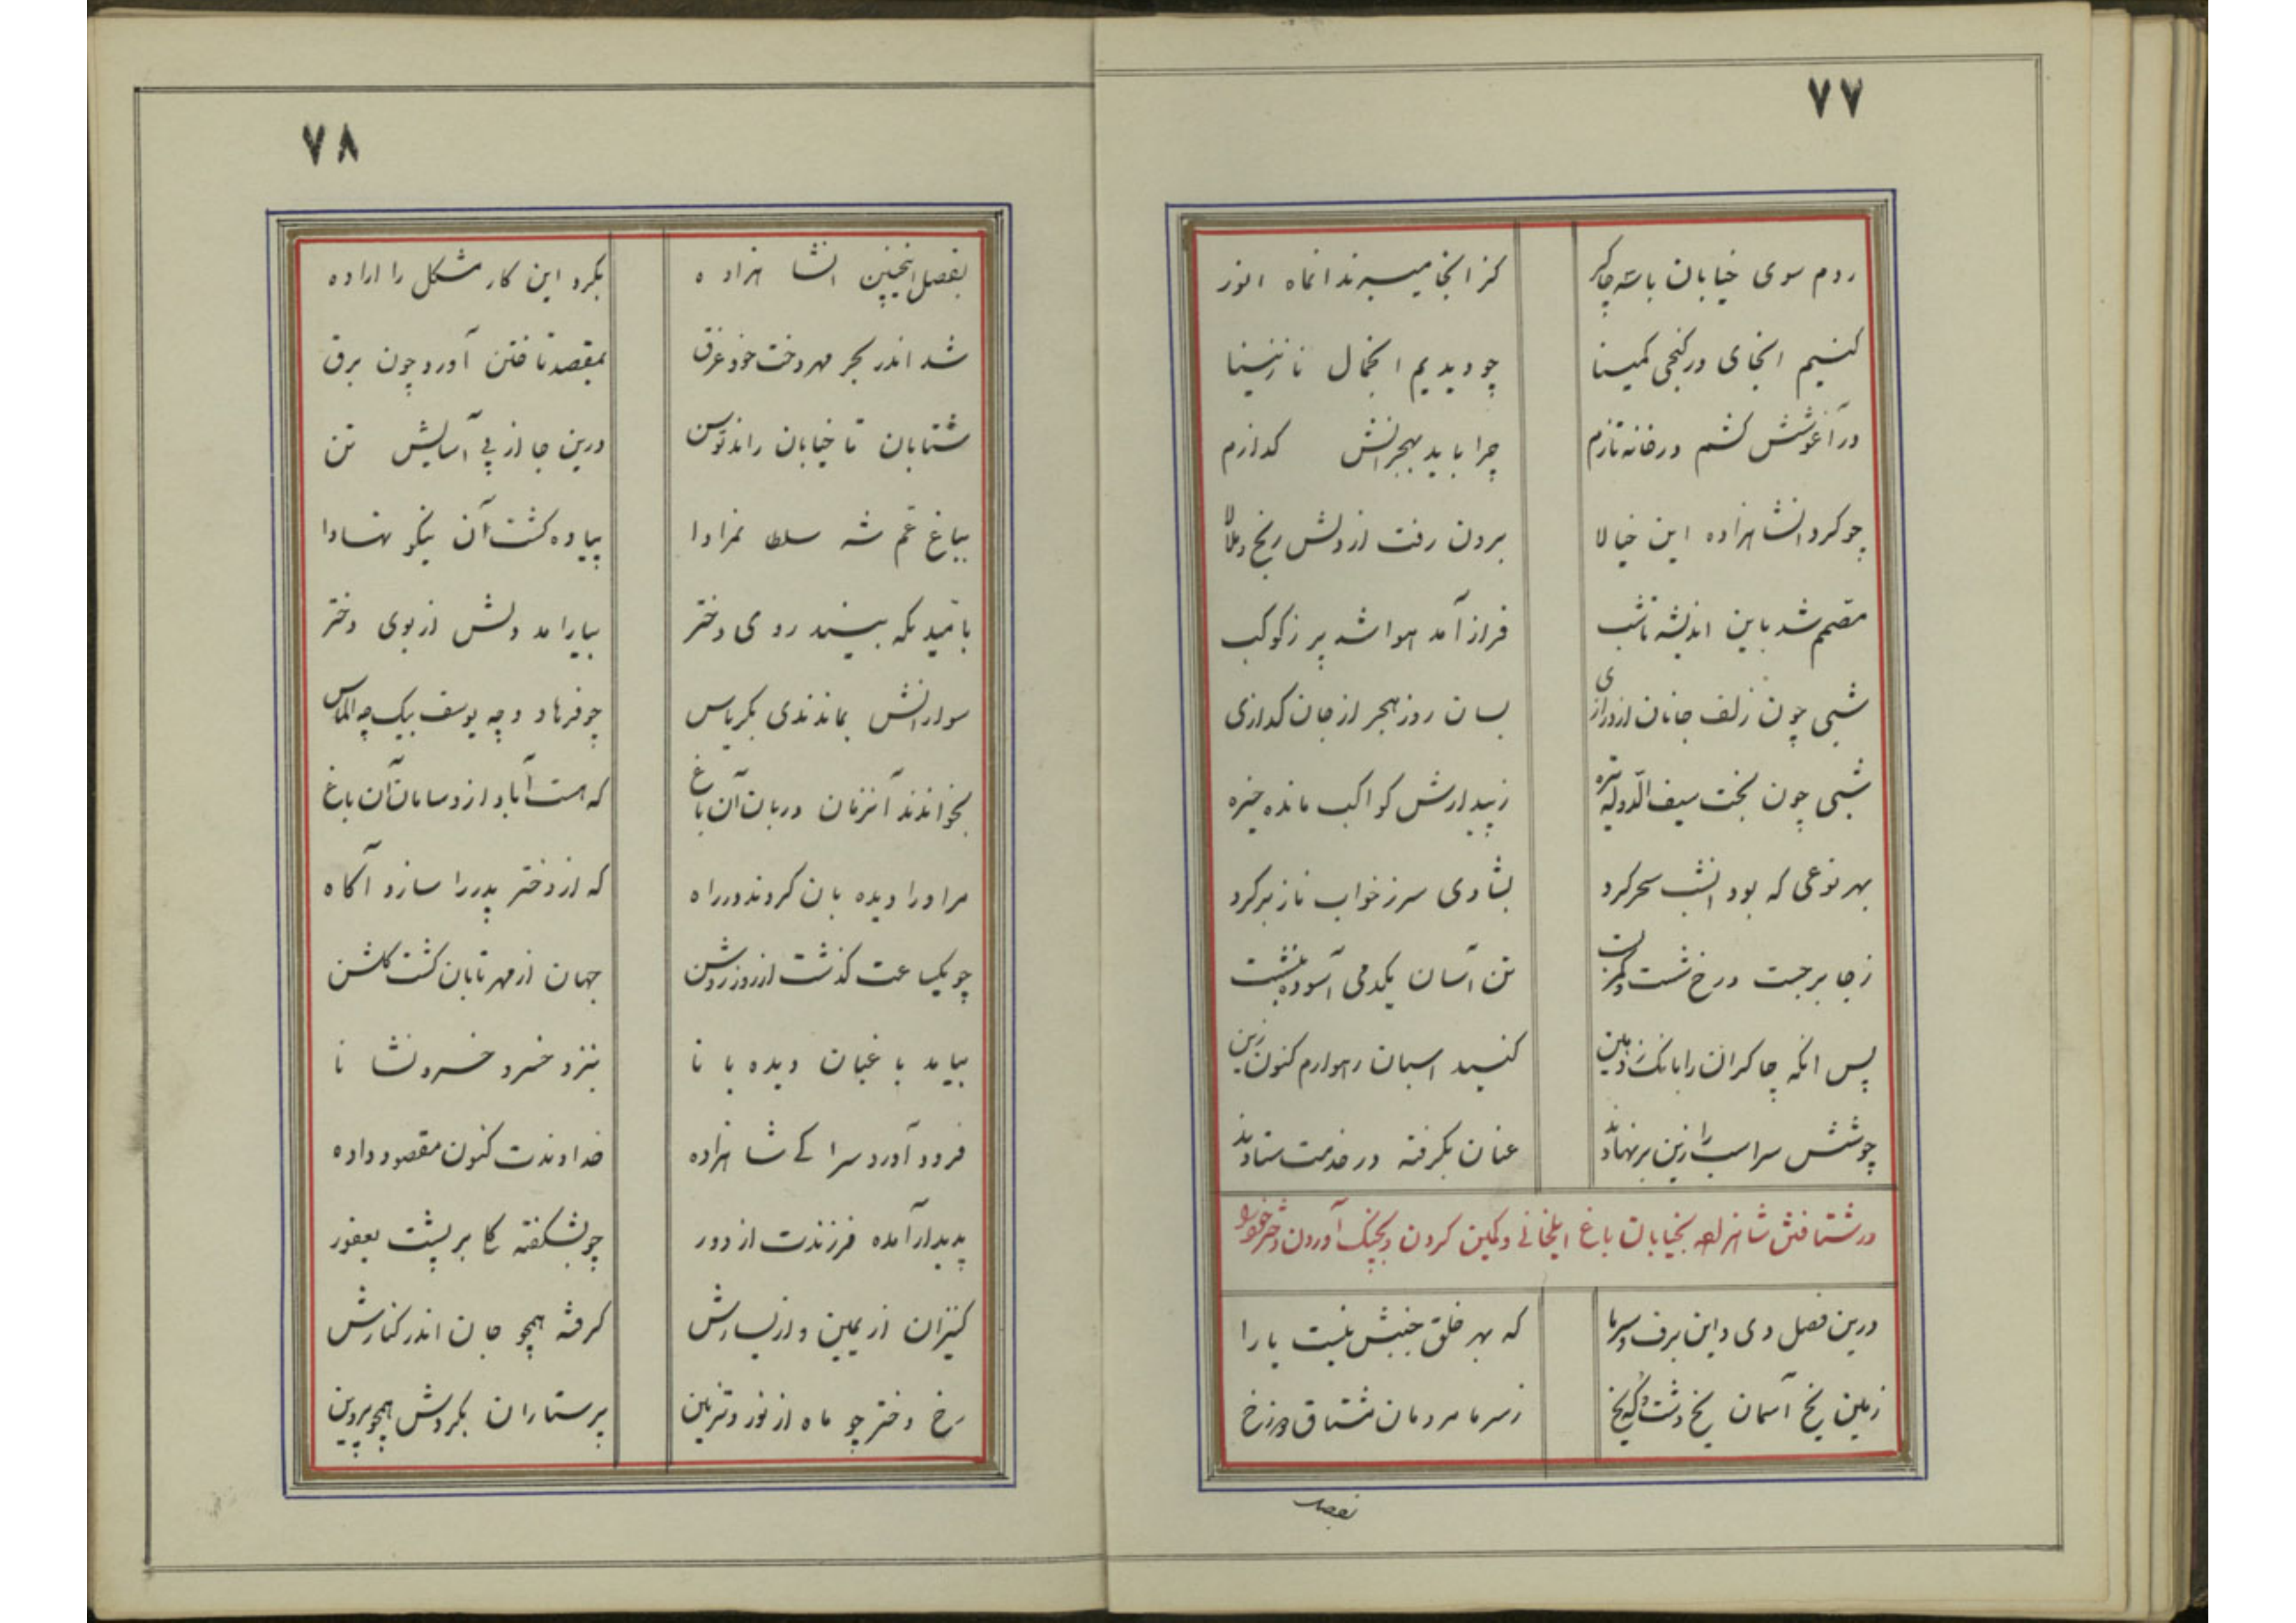 ۷۷
روم سوی خیابان با سه چاکر کز انجا میبرند انماه انور
کنیم انجای در کنجی کمینا چو دیدیم انجمال نازنینا
در آغوشش کشم در خانه تازم چرا باید بهجرانش گدازم
چو کرد انشاهزاده این خیالا برون رفت از دلش رنج و ملالا
مصمم شد باین اندیشه تا شب فراز آمد هوا شد پر ز کوکب
شبی چون زلف جانان از درازی بسان روز هجر از جان گدازی
شبی چون بخت سیف الدوله تیره ز بیداریش کواکب مانده خیره
بهر نوعی که بود انشب سحر کرد بشادی سر ز خواب ناز بر کرد
ز جا برجست و رخ شست و کمر بست تن آسان یکدمی آسوده بنشست
پس انکه چاکران را بانک زد هین کنید اسبان رهوارم کنون زین
چو شش سر اسب را زین بر نهادند عنان بگرفته در خدمت ستادند
در شتافتن شاهزاده بخیابان باغ ایلخانی و کمین کردن و بچنگ آوردن دختر خسرو
درین فصل دی و این برف و سرما که بهر خلق جنبش نیست یارا
زمین یخ آسمان یخ دشت و که یخ ز سرما مردمان مشتاق دوزخ
بفصل
۷۸
بفصل اینچنین انشاهزاده بکرد این کار مشکل را اراده
شد اندر بحر مهر دخت خود غرق بمقصد تاختن آورد چون برق
شتابان تا خیابان راند توسن درین جا از پی آسایش تن
بباغ عم شه سلطانمرادا پیاده گشت آن نیکو نهادا
بامید یکه بیند روی دختر بیارامد دلش از بوی دختر
سوارانش بماندندی بکریاس چو فرهاد و چه یوسف بیک چه الماس
بخواندند آنزمان دربان آن باغ که هست آباد از و سامان آن باغ
مر او را دیده بان کردند در راه که از دختر پدر را سازد آگاه
چو یکساعت گذشت از روز روشن جهان از مهر تابان گشت گلشن
بیامد باغبان دیده بانا بنزد خسرو خسرو نشانا
فرود آورد سر ا کے شاهزاده خداوندت کنون مقصود داده
پدیدار آمده فرزندت از دور چو بشکفته گل بر پشت یعفور
کنیزان از یمین و از یسارش گرفته همچو جان اندر کنارش
رخ دختر چو ماه از نور و تزیین پرستاران بگردش همچو پروین